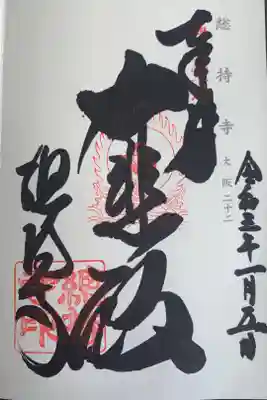 奉拝
總持寺 大阪二十二
令和三年一月五日
総持寺
總持寺印